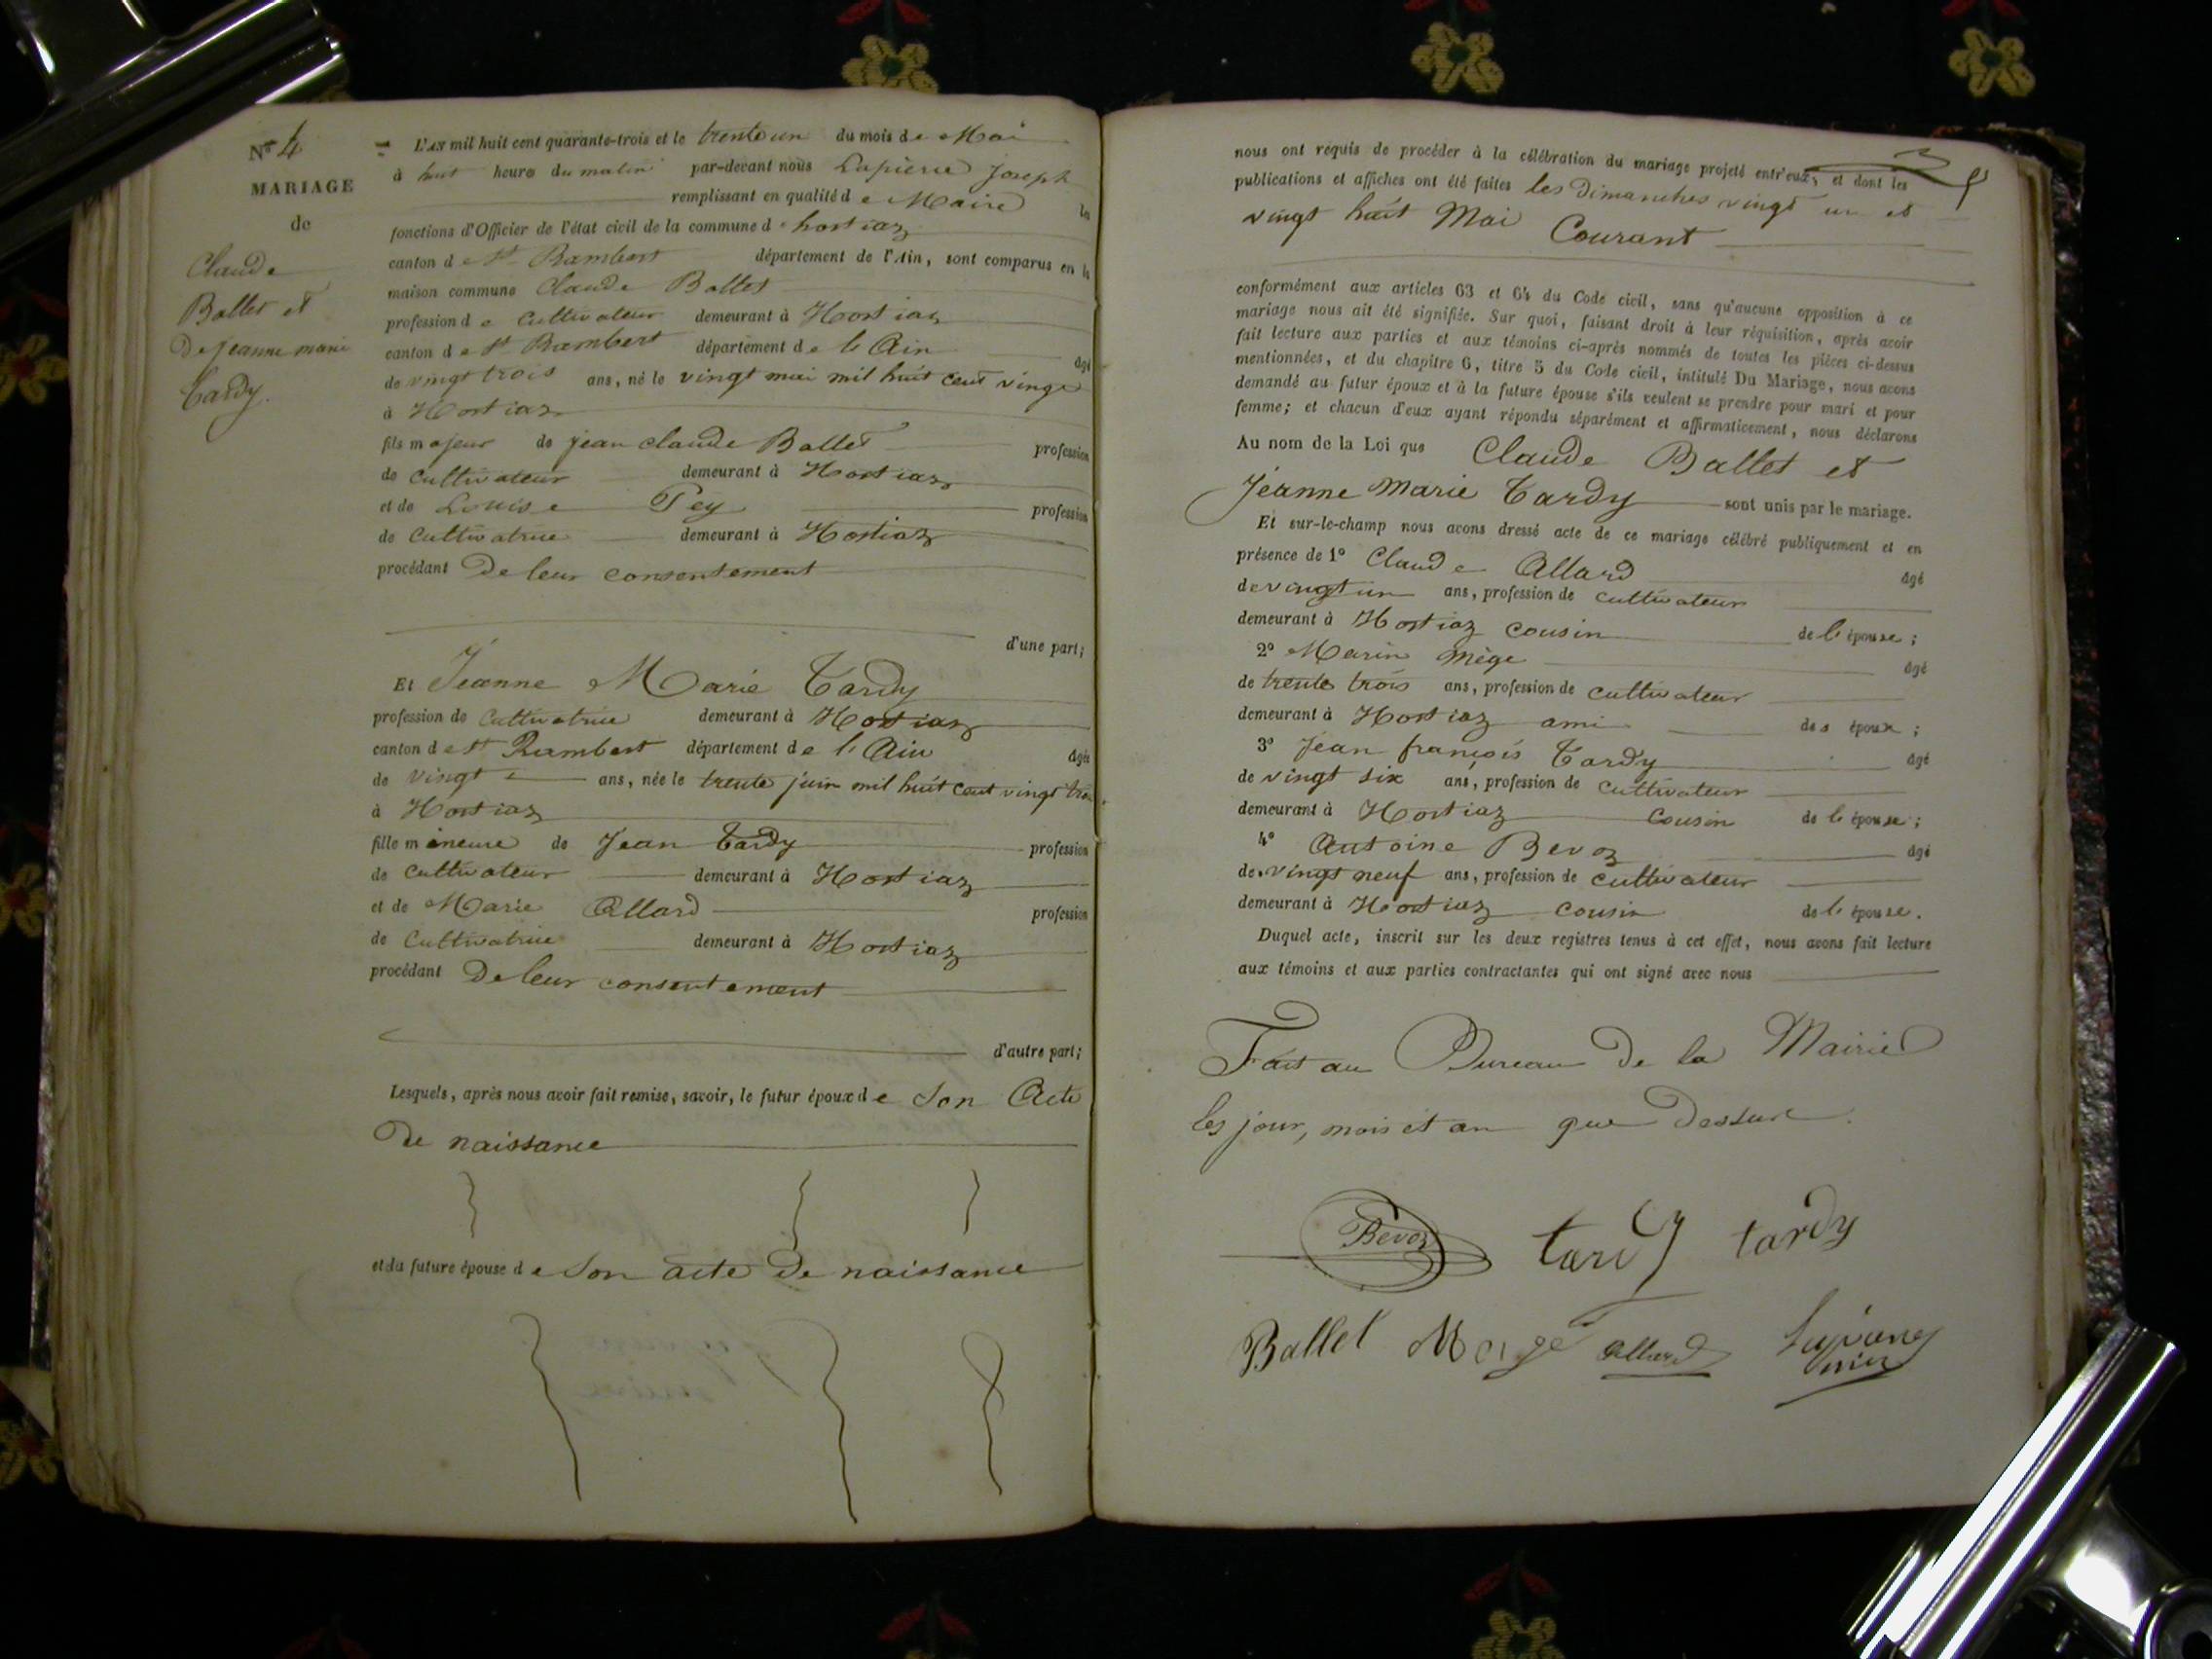 N° 4
MARIAGE
de
Claude
Ballet et
De jeanne marie
Tardy.
L'an mil huit cent quarante-trois et le trente un du mois de Mai
à huit heures du matin par-devant nous Lapierre Joseph
remplissant en qualité de Maire les
fonctions d'Officier de l'état civil de la commune d hostiaz
canton de St Rambert département de l'Ain, sont comparus en la
maison commune Claude Ballet
profession de Cultivateur demeurant à Hostiaz
canton de St Rambert département de l'Ain âgé
de vingt trois ans, né le vingt mai mil huit cent vingt
à Hostiaz
fils majeur de jean claude Ballet profession
de cultivateur demeurant à Hostiaz
et de Louise Pey profession
de Cultivatrice demeurant à Hostiaz
procédant De leur consentement
d'une part;
Et Jeanne Marie Tardy
profession de Cultivatrice demeurant à Hostiaz
canton de St Rambert département de l'Ain âgée
de vingt ans, née le trente juin mil huit cent vingt trois
à Hostiaz
fille mineure de Jean Tardy profession
de cultivateur demeurant à Hostiaz
et de Marie Allard profession
de Cultivatrice demeurant à Hostiaz
procédant De leur consentement
d'autre part;
Lesquels, après nous avoir fait remise, savoir, le futur époux de Son Acte
De naissance
et la future épouse de Son acte De naissance
nous ont requis de procéder à la célébration du mariage projeté entr'eux, et dont les
publications et affiches ont été faites les Dimanches vingt un et
vingt huit Mai Courant
conformément aux articles 63 et 64 du Code civil, sans qu'aucune opposition à ce
mariage nous ait été signifiée. Sur quoi, faisant droit à leur réquisition, après avoir
fait lecture aux parties et aux témoins ci-après nommés de toutes les pièces ci-dessus
mentionnées, et du chapitre 6, titre 5 du Code civil, intitulé Du Mariage, nous avons
demandé au futur époux et à la future épouse s'ils veulent se prendre pour mari et pour
femme; et chacun d'eux ayant répondu séparément et affirmativement, nous déclarons
Au nom de la Loi que Claude Ballet et
Jeanne Marie Tardy sont unis par le mariage.
Et sur-le-champ nous avons dressé acte de ce mariage célébré publiquement et en
présence de 1° Claude Allard âgé
de vingt un ans, profession de cultivateur
demeurant à Hostiaz cousin de l'épouse;
2° Marin Mège âgé
de trente trois ans, profession de cultivateur
demeurant à Hostiaz ami des époux;
3° Jean françois Tardy âgé
de vingt six ans, profession de cultivateur
demeurant à Hostiaz Cousin de l'épouse;
4° Antoine Bevoz âgé
de vingt neuf ans, profession de cultivateur
demeurant à Hostiaz cousin de l'épouse.
Duquel acte, inscrit sur les deux registres tenus à cet effet, nous avons fait lecture
aux témoins et aux parties contractantes qui ont signé avec nous
Fait au Bureau De la Mairie
les jour, mois et an que Dessus.
Bevoz tardy tardy
Ballet Mège Allard Lapierre